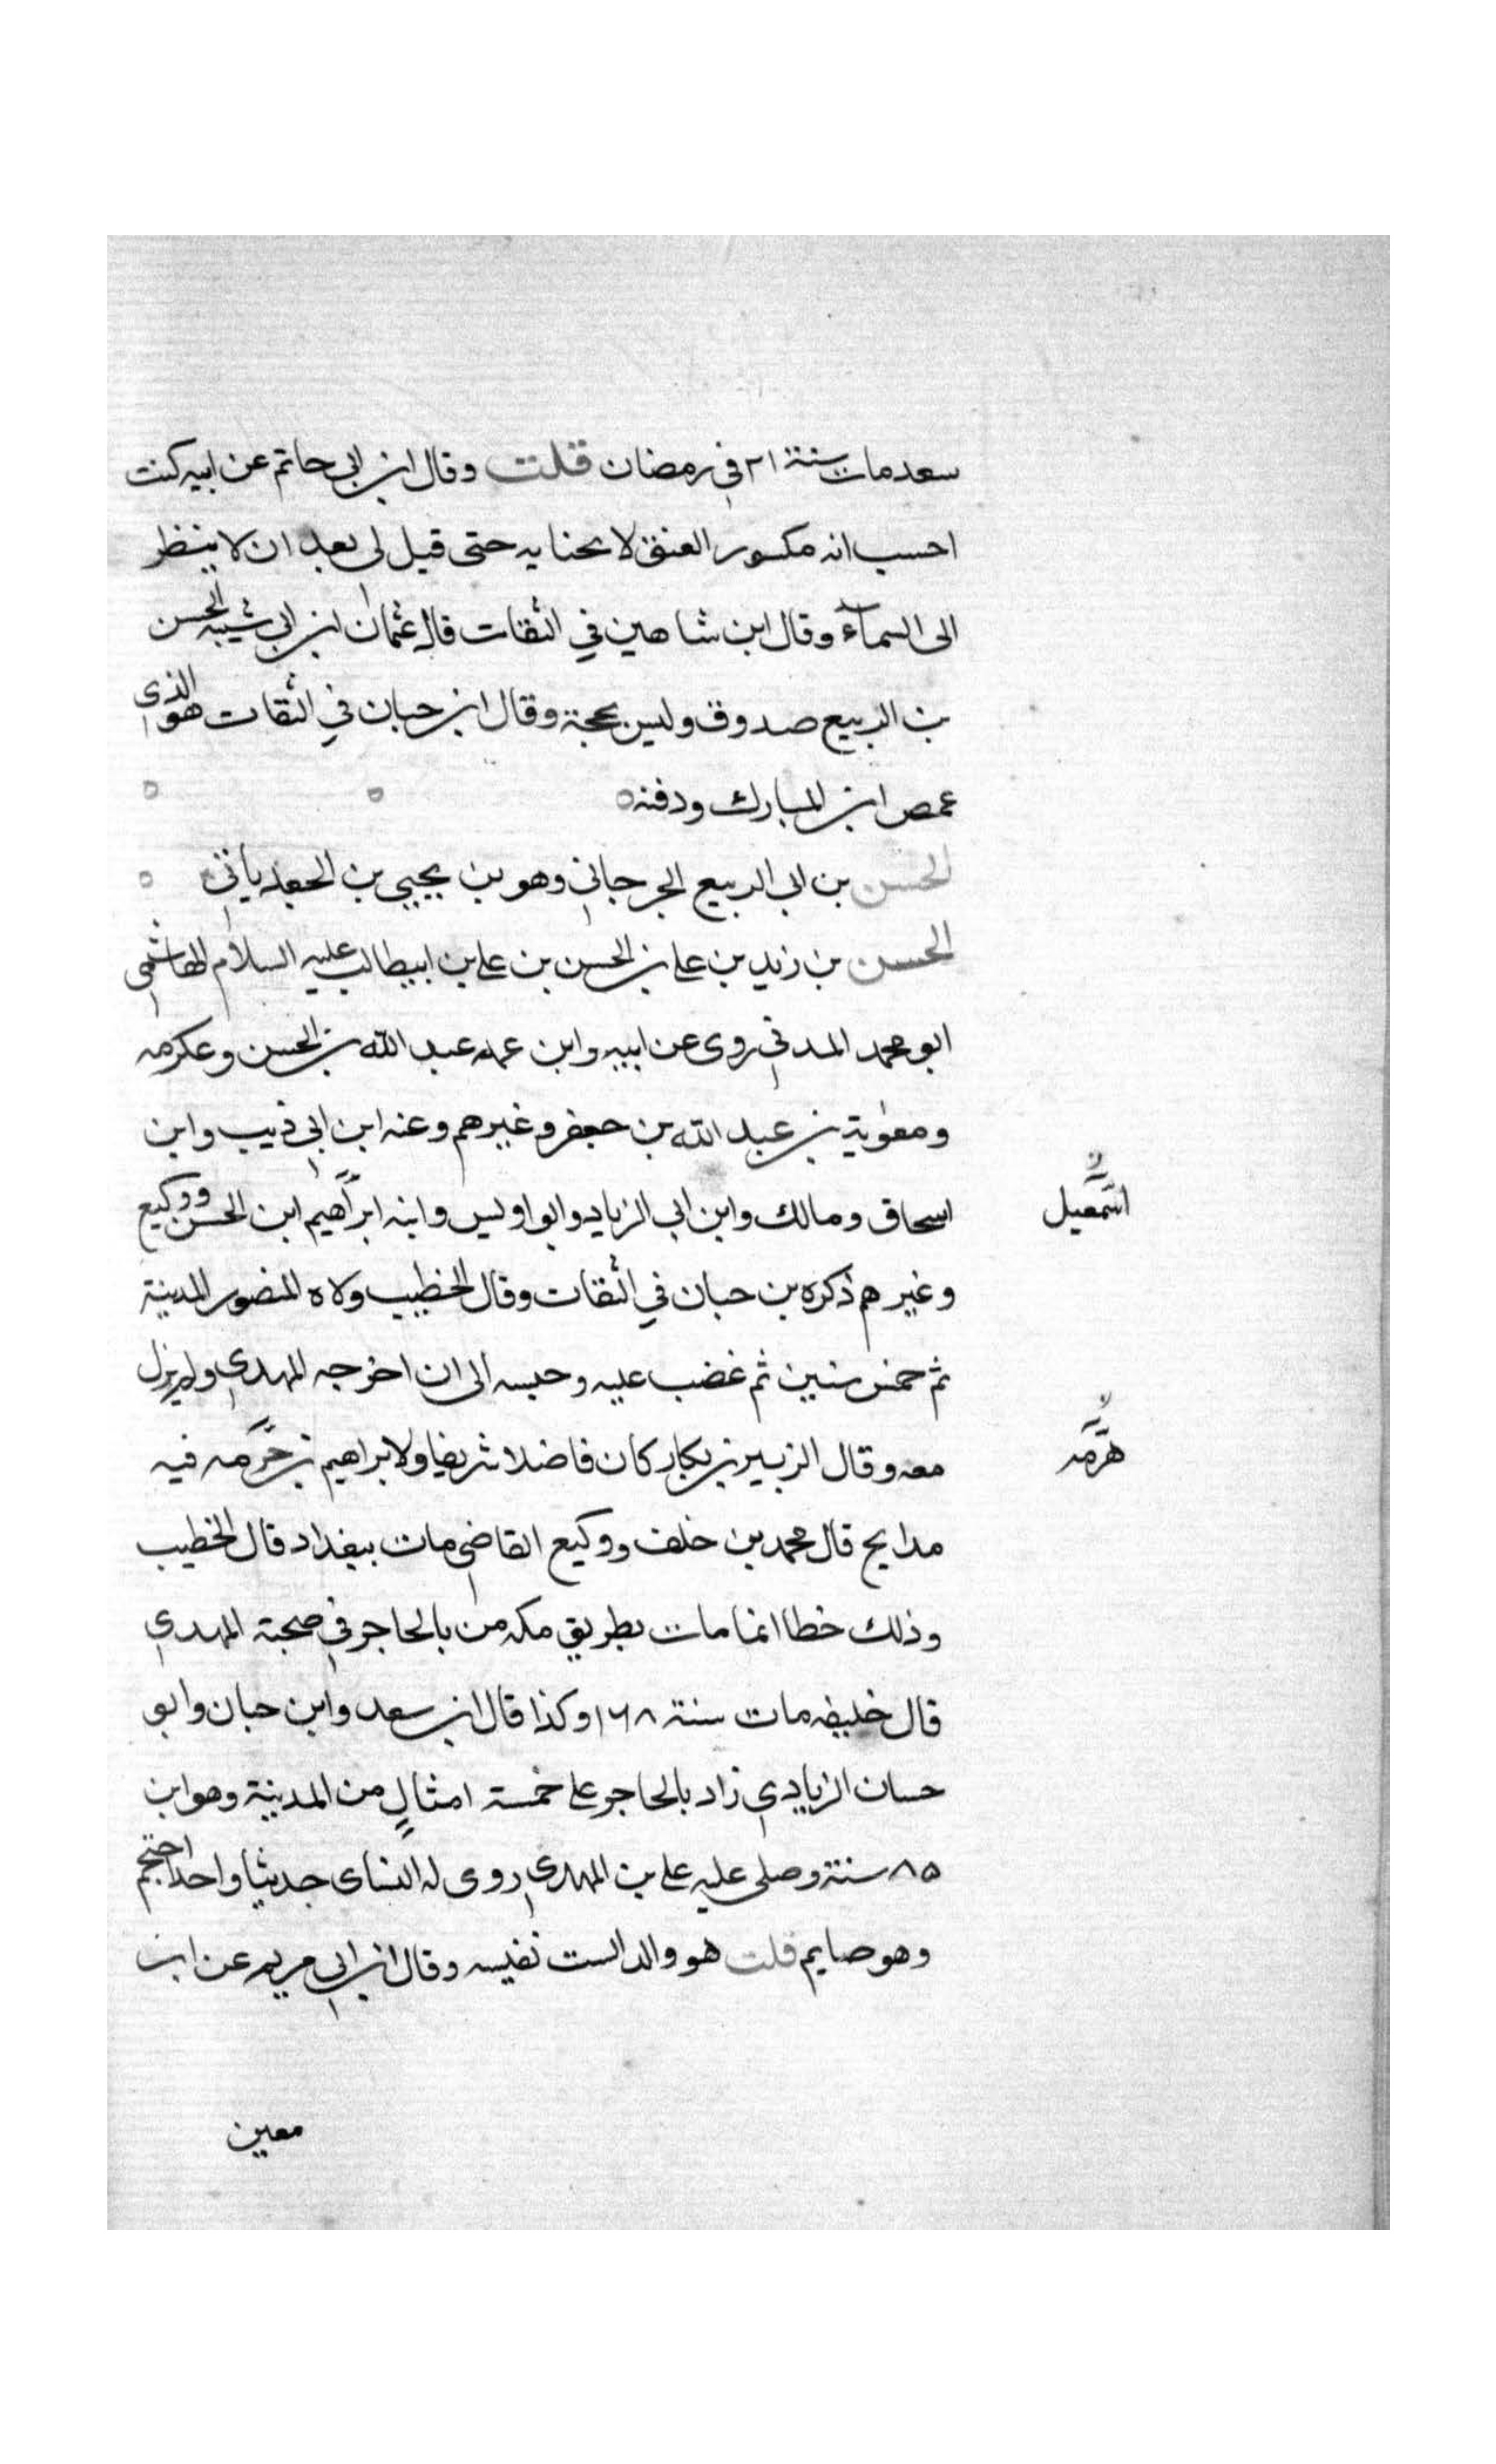 سعد مات سنة ٢١ في رمضان قلت وقال ابن ابي حاتم عن ابيه كنت
احسب انه مكسور العنق لانحنايه حتى قيل لي بعد ان لا ينظر
الى السمآء وقال ابن شاهين في الثقات قال عثمان ابن ابي شيبه الحسن
بن الربيع صدوق وليس بحجة وقال ابن حبان في الثقات هو الذي
غمص ابن المبارك ودفنه
الحسن بن ابي الربيع الجرجاني وهو بن يحيى بن الجعد ياتي
الحسن بن زيد بن علي بن الحسن بن علي بن ابيطالب عليه السلام الهاشمي
ابو محمد المدني روى عن ابيه وابن عمه عبد الله بن الحسن وعكرمه
ومعوية بن عبد الله بن جعفر وغيرهم وعنه ابن ابي ذيب وابن
اسحاق ومالك وابن ابي الزياد وابو اويس وابنه ابراهيم ابن الحسن ووكيع
اسمعيل
وغيرهم ذكره بن حبان في الثقات وقال الخطيب ولاه المنصور المدينة
ثم خمس سنين ثم غضب عليه وحبسه الى ان اخرجه المهدي ولم يزل
معه وقال الزبير بن بكار كان فاضلا شريفا ولابراهيم بن حرمه فيه
هرمه
مدايح قال محمد بن خلف ووكيع القاضي مات ببغداد قال الخطيب
وذلك خطا انما مات بطريق مكه من بالحاجر في صحبة المهدي
قال خليفه مات سنة ١٦٨ وكذا قال ابن سعد وابن حبان وابو
حسان الزيادي زاد بالحاجر على خمسة امثال من المدينة وهو ابن
٨٥ سنة وصلى عليه علي بن المهدي روى له النساى حديثا واحدا احتجم
وهو صايم قلت هو والد الست نفيسه وقال ابن ابي مريم عن ابن
معين